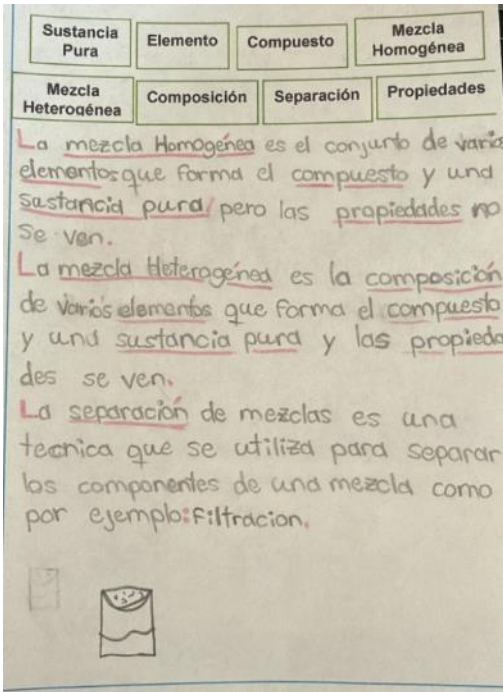 Sustancia Pura Elemento Compuesto Mezcla Homogénea
Mezcla Heterogénea Composición Separación Propiedades
La mezcla Homogénea es el conjunto de vario
elementos que forma el compuesto y una
sustancia pura pero las propiedades no
se ven.
La mezcla Heterogénea es la composición
de varios elementos que forma el compuesto
y una sustancia pura y las propieda
des se ven.
La separación de mezclas es una
tecnica que se utiliza para separar
los componentes de una mezcla como
por ejemplo: Filtracion.